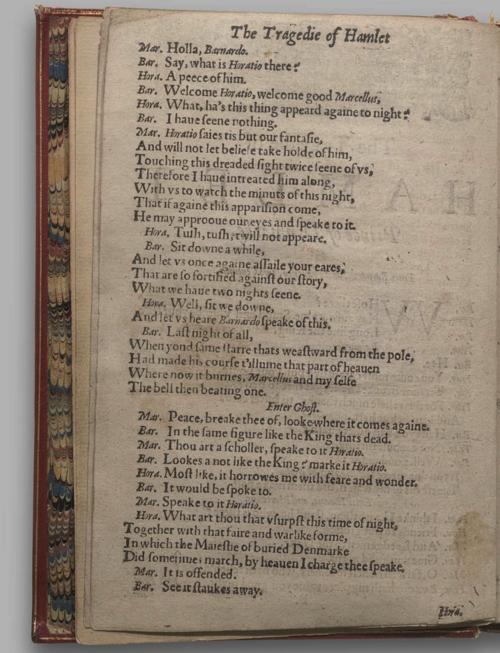 The Tragedie of Hamlet
Mar. Holla, Barnardo.
Bar. Say, what is Horatio there?
Hora. A peece of him.
Bar. Welcome Horatio, welcome good Marcellus,
Hora. What, ha's this thing appeard againe to night?
Bar. I haue seene nothing.
Mar. Horatio saies tis but our fantasie,
And will not let beliefe take holde of him,
Touching this dreaded sight twice seene of vs,
Therefore I haue intreated him along,
With vs to watch the minuts of this night,
That if againe this apparision come,
He may approoue our eyes and speake to it.
Hora. Tush, tush, twill not appeare.
Bar. Sit downe a while,
And let vs once againe assaile your eares,
That are so fortified against our story,
What we haue two nights seene.
Hora. Well, sit we downe,
And let vs heare Barnardo speake of this.
Bar. Last night of all,
When yond same starre thats weastward from the pole,
Had made his course t'illume that part of heauen
Where now it burnes, Marcellus and my selfe
The bell then beating one.
Enter Ghost.
Mar. Peace, breake thee of, looke where it comes againe.
Bar. In the same figure like the King thats dead.
Mar. Thou art a scholler, speake to it Horatio.
Bar. Lookes a not like the King? marke it Horatio.
Hora. Most like, it horrowes me with feare and wonder.
Bar. It would be spoke to.
Mar. Speake to it Horatio.
Hora. What art thou that vsurpst this time of night,
Together with that faire and warlike forme,
In which the Maiestie of buried Denmarke
Did sometimes march, by heauen I charge thee speake.
Mar. It is offended.
Bar. See it staukes away.
Hora.